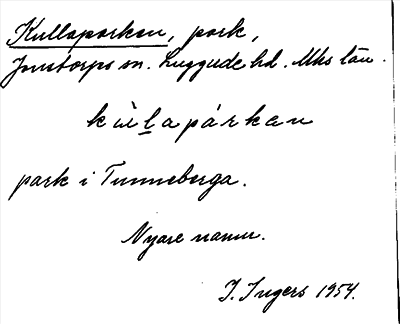 Kullaparken, park,
Jonstorps sn. Luggude hd. Mhs län.
kùlapárkan
park i Tunneberga.
Nyare namn.
I. Ingers 1954.